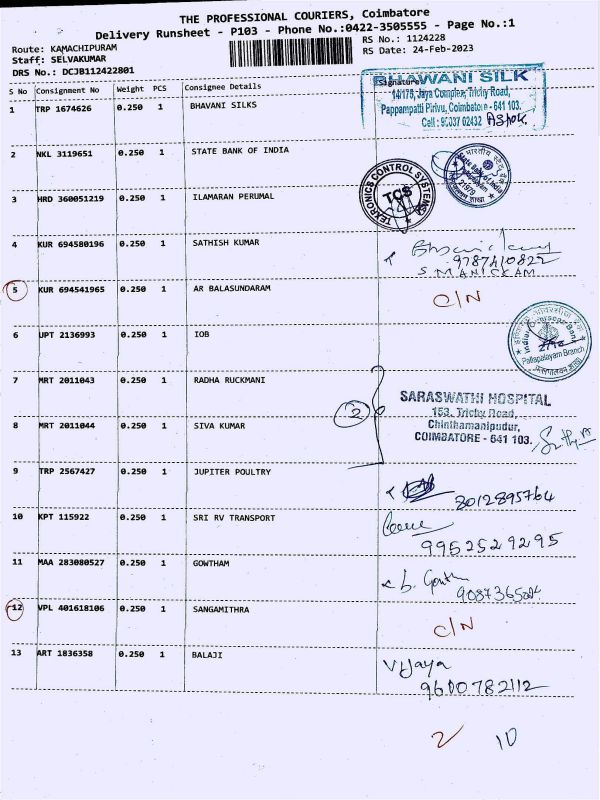 THE PROFESSIONAL COURIERS, Coimbatore
Delivery Runsheet - P103 - Phone No.:0422-3505555 - Page No.:1
Route: KAMACHIPURAM
RS No.: 1124228
Staff: SELVAKUMAR
RS Date: 24-Feb-2023
DRS No.: DCJB112422801
S No Consignment No Weight PCS Consignee Details Signature
1 TRP 1674626 0.250 1 BHAVANI SILKS
BHAWANI SILK
14/175, Jaya Complex, Trichy Road,
Pappampatti Pirivu, Coimbatore - 641 103.
Cell : 90037 02432 Ashok
2 NKL 3119651 0.250 1 STATE BANK OF INDIA
State Bank of India
3 HRD 360051219 0.250 1 ILAMARAN PERUMAL
TEXRONICS CONTROL SYSTEMS
TCS
4 KUR 694580196 0.250 1 SATHISH KUMAR
9787410822
S MANICKAM
5 KUR 694541965 0.250 1 AR BALASUNDARAM C/N
6 UPT 2136993 0.250 1 IOB
Indian Overseas Bank
Branch
7 MRT 2011043 0.250 1 RADHA RUCKMANI
2
SARASWATHI HOSPITAL
153, Trichy Road,
Chinthamanipudur,
COIMBATORE - 641 103.
8 MRT 2011044 0.250 1 SIVA KUMAR
9 TRP 2567427 0.250 1 JUPITER POULTRY
8012895764
10 KPT 115922 0.250 1 SRI RV TRANSPORT
9952529295
11 MAA 283080527 0.250 1 GOWTHAM
12 VPL 401618106 0.250 1 SANGAMITHRA C/N
13 ART 1836358 0.250 1 BALAJI
Vijaya
9600782112
2 10